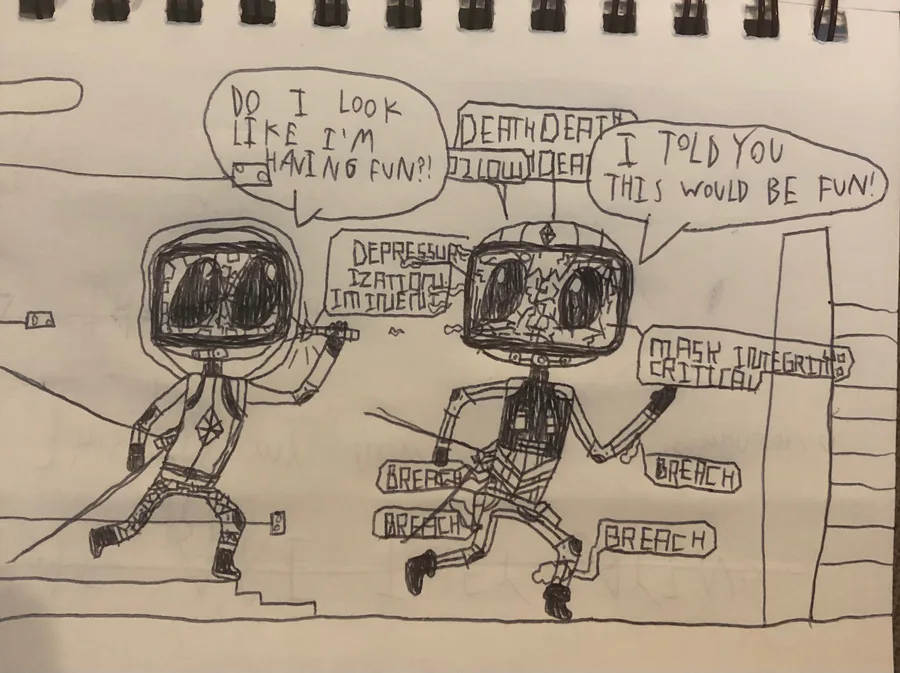 DO I LOOK
LIKE I'M
HAVING FUN?!
DEATH DEATH
DEA
I TOLD YOU
THIS WOULD BE FUN!
DEPRESSUR
IZATION
IMINENT
MASK INTEGRITY
CRITICAL
BREACH
BREACH
BREACH
BREACH